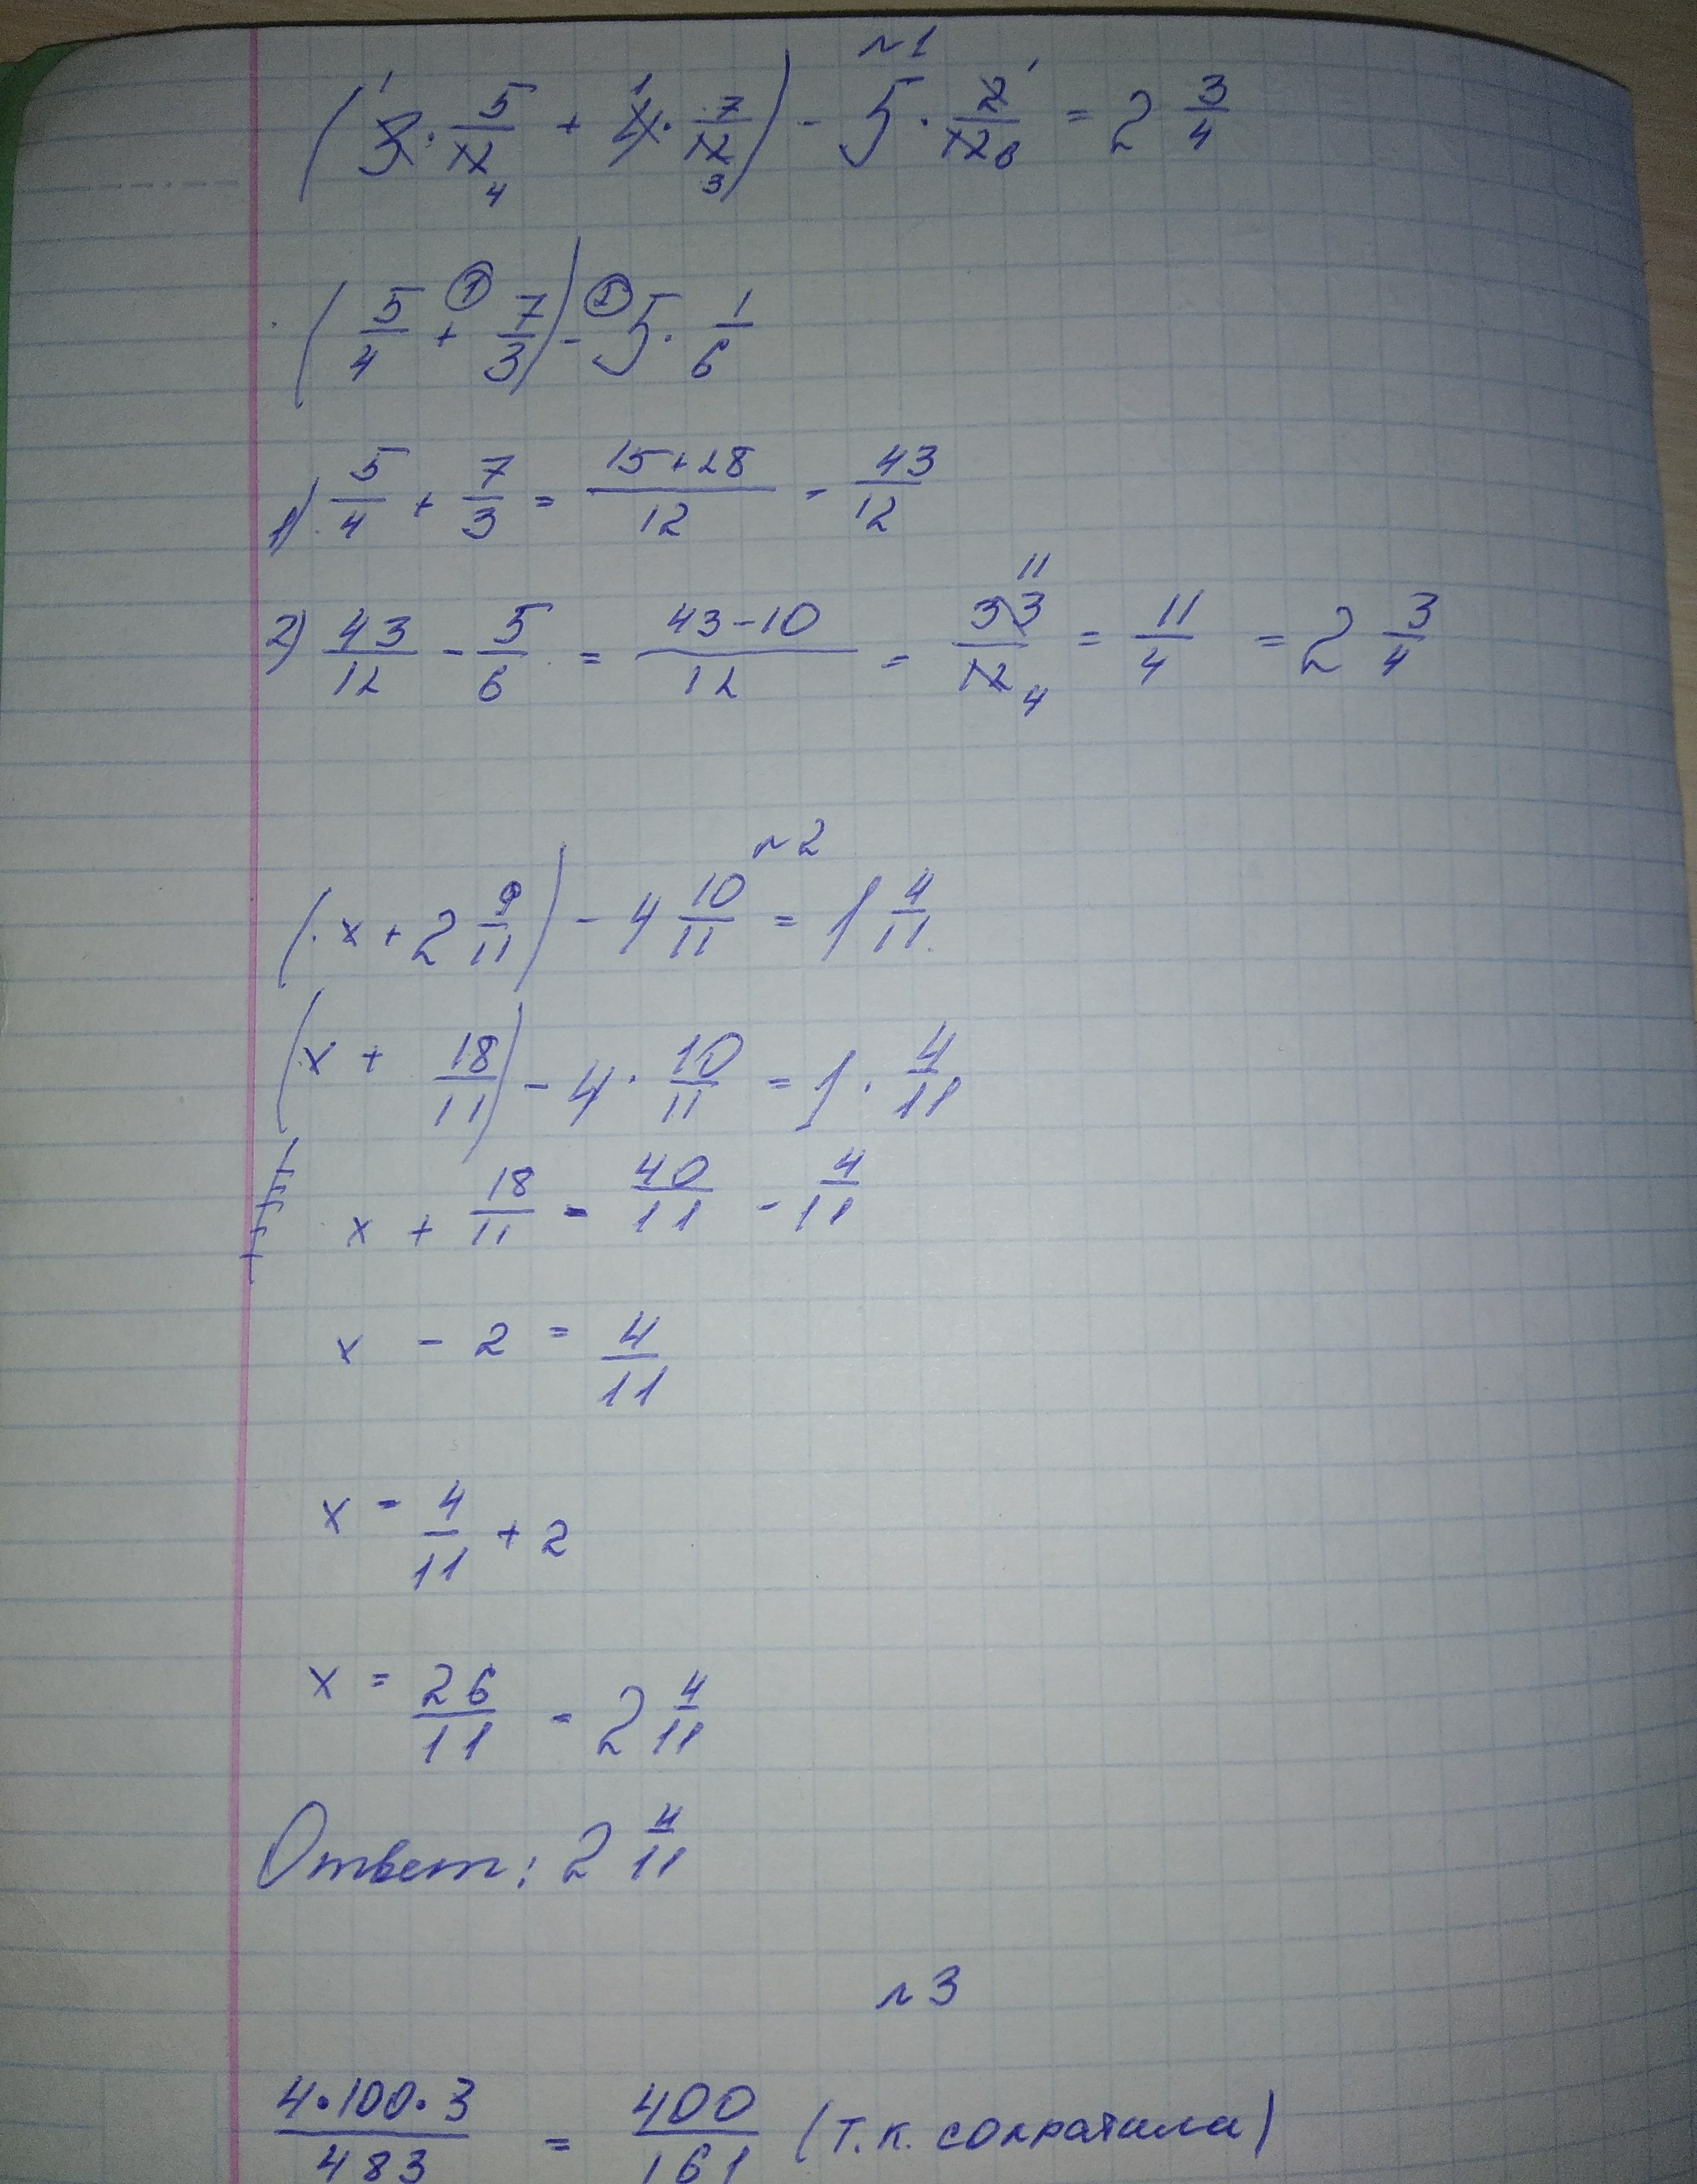 №1
(3 · 5/12 4 + 4 · 7/12 3) - 5 · 2/12 6 = 2 3/4
(5/4 + 7/3) - 5 · 1/6
1) 5/4 + 7/3 = 15+28/12 = 43/12
2) 43/12 - 5/6 = 43-10/12 = 33/12 = 11/4 = 2 3/4
№2
(x + 2 9/11) - 4 10/11 = 1 4/11
(x + 18/11) - 4 · 10/11 = 1 · 4/11
x + 18/11 = 40/11 - 4/11
x - 2 = 4/11
x = 4/11 + 2
x = 26/11 = 2 4/11
Ответ: 2 4/11
№3
4·100·3/483 = 400/161 (т.к. сократила)